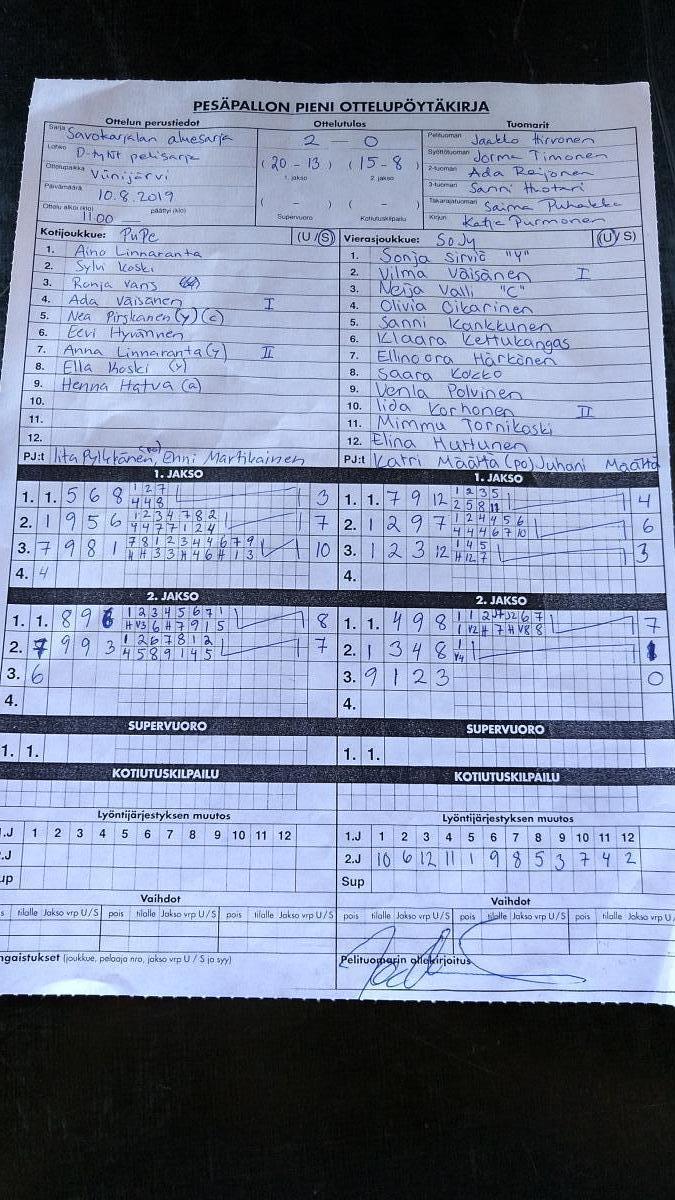 PESÄPALLON PIENI OTTELUPÖYTÄKIRJA
Ottelun perustiedot
Sarja Savokarjalan aluesarja
Lohko D-tytöt pelisarja
Ottelupaikka Viinijärvi
Päivämäärä 10.8.2019
Ottelu alkoi (klo) 11.00 päättyi (klo)
Ottelutulos
2 — 0
(20-13) (15-8)
1. jakso 2. jakso
( - ) ( - )
Supervuoro Kotiutuskilpailu
Tuomarit
Pelituomari Jaakko Hirvonen
Syöttötuomari Jorma Timonen
2-tuomari Ada Reijonen
3-tuomari Sanni Huotari
Takarajatuomari Saima Puhakka
Kirjuri Katja Purmonen
Kotijoukkue: PuPe (U/S)
1. Aino Linnaranta
2. Sylvi Koski
3. Ronja Vans
4. Ada Väisänen I
5. Nea Pirskanen (y) (c)
6. Eevi Hyvännen
7. Anna Linnaranta (y) II
8. Ella Koski (y)
9. Henna Hatva (a)
10.
11.
12.
PJ:t Iita Pylkkänen (po), Enni Martikainen
Vierasjoukkue: SoJy (U/S)
1. Sonja Sirviö "Y"
2. Vilma Väisänen I
3. Neija Valli "C"
4. Olivia Oikarinen
5. Sanni Kankkunen
6. Klaara Kettukangas
7. Ellinoora Härkönen
8. Saara Kokko
9. Venla Polvinen
10. Iida Korhonen II
11. Mimmu Tornikoski
12. Elina Huttunen
PJ:t Katri Määttä (po) Juhani Määttä
1. JAKSO
1. 1. 5 6 8 1 2 7 3
4 4 8
2. 1 9 5 6 1 2 3 4 7 8 2 7
4 4 7 7 1 2 4
3. 7 9 8 1 7 8 1 2 3 4 4 6 7 9 10
H H 3 3 H 4 6 H 1 3
4. 4
1. JAKSO
1. 1. 7 9 12 1 2 3 5 4
2 5 8 11
2. 1 2 9 7 1 2 4 4 5 6 6
4 4 4 6 7 10
3. 1 2 3 12 1 4 5 3
H 12 7
4.
2. JAKSO
1. 1. 8 9 6 1 2 3 4 5 6 7 1 8
H V3 6 H 7 9 1 5
2. 7 9 9 3 1 2 6 7 8 1 2 7
4 5 8 9 1 4 5
3. 6
4.
2. JAKSO
1. 1. 4 9 8 7
2. 1 3 4 8 1 1
V4
3. 9 1 2 3 0
4.
SUPERVUORO
1. 1.
SUPERVUORO
1. 1.
KOTIUTUSKILPAILU
KOTIUTUSKILPAILU
Lyöntijärjestyksen muutos
1.J 1 2 3 4 5 6 7 8 9 10 11 12
2.J
Sup
Lyöntijärjestyksen muutos
1.J 1 2 3 4 5 6 7 8 9 10 11 12
2.J 10 6 12 11 1 9 8 5 3 7 4 2
Sup
Vaihdot
tilalle Jakso vrp U/S pois tilalle Jakso vrp U/S pois tilalle Jakso vrp U/S
Vaihdot
pois tilalle Jakso vrp U/S pois tilalle Jakso vrp U/S pois tilalle Jakso vrp U/
ngaistukset (joukkue, pelaaja nro, jakso vrp U / S ja syy)
Pelituomarin allekirjoitus